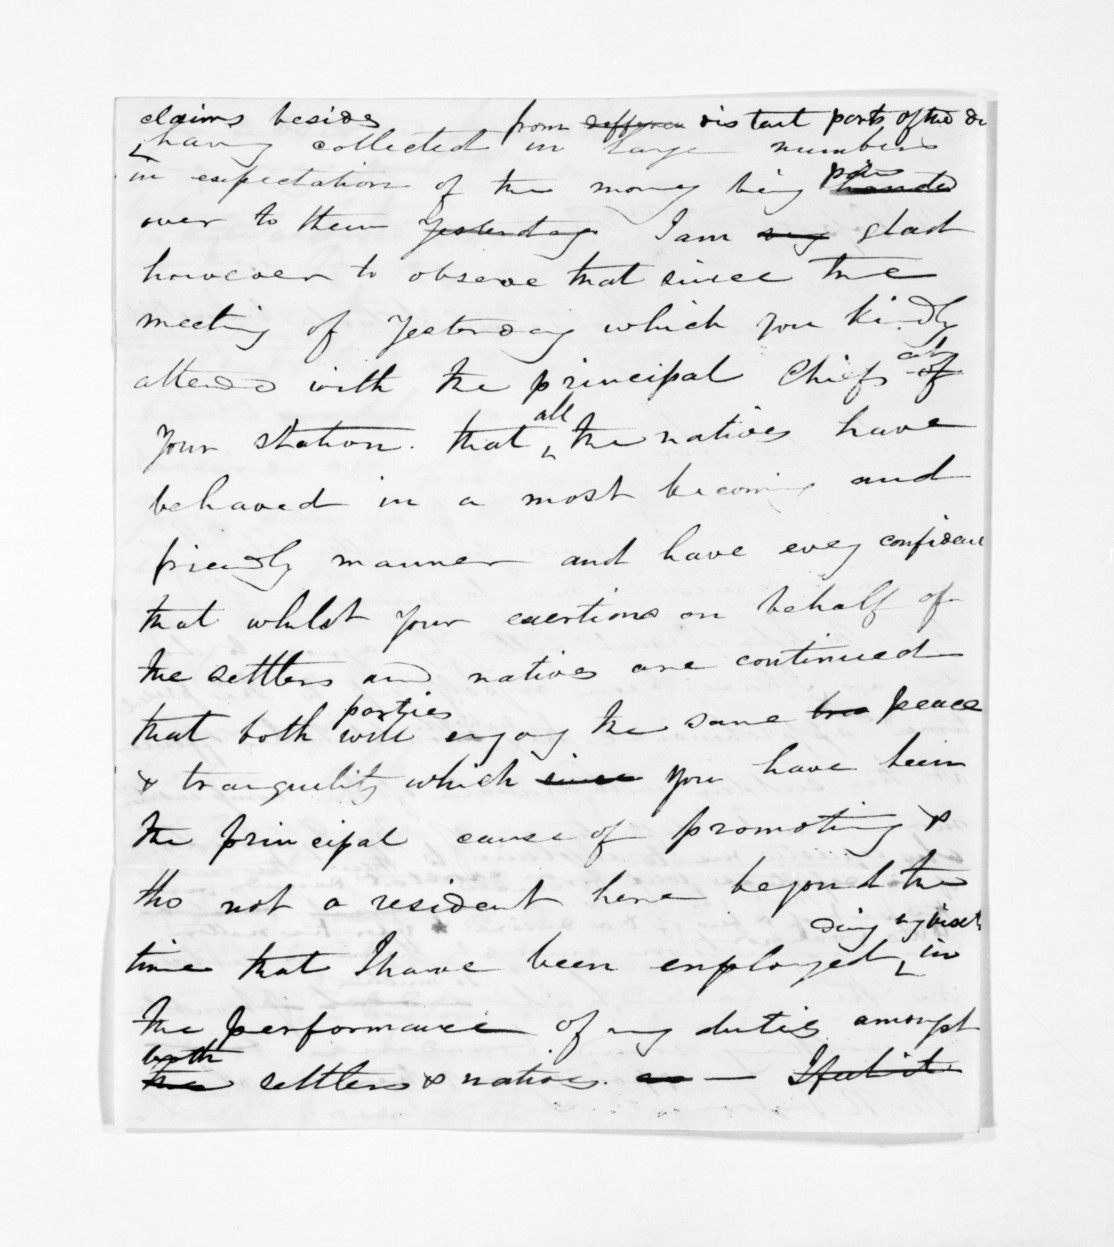 claims beside from differen distant parts of the di
having collected in large numbers
in expectation of the money being paid handed
over to them Yesterday I am very glad
however to observe that since the
meeting of Yesterday which you kindly
attended with the principal Chiefs at of
Your station. that all the natives have
behaved in a most becoming and
friendly manner and have every confidence
that whilst Your exertions on behalf of
the settlers and natives are continued
that both parties will enjoy the same peace
& tranquility which since You have been
the principal cause of promoting &
tho not a resident here beyond the
time that I have been employed during my visit in
the performance of my duties amongst
both the settlers & natives. — I feel it